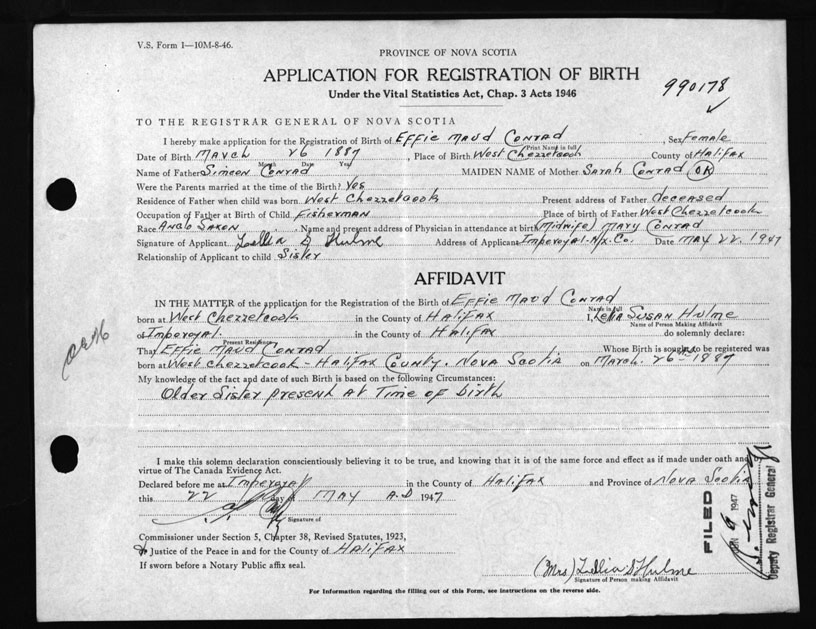 V.S. Form 1—10M-8-46.
PROVINCE OF NOVA SCOTIA
APPLICATION FOR REGISTRATION OF BIRTH
990178
Under the Vital Statistics Act, Chap. 3 Acts 1946
TO THE REGISTRAR GENERAL OF NOVA SCOTIA
I hereby make application for the Registration of Birth of Effie Maud Conrad, Sex Female
Print Name in full
Date of Birth March 26 1887, Place of Birth West Chezzetcook County of Halifax
Month Date Year
Name of Father Simeon Conrad MAIDEN NAME of Mother Sarah Conrad OK
Were the Parents married at the time of the Birth? Yes
Residence of Father when child was born West Chezzetcook Present address of Father deceased
Occupation of Father at Birth of Child Fisherman Place of birth of Father West Chezzetcook
Race Anglo Saxon. Name and present address of Physician in attendance at birth (Midwife) Mary Conrad
Signature of Applicant Lellia S Hulme Address of Applicant Imperoyal. Hx. Co. Date May 22. 1947
Relationship of Applicant to child Sister
AFFIDAVIT
IN THE MATTER of the application for the Registration of the Birth of Effie Maud Conrad
Name in full
born at West Chezzetcook in the County of Halifax I, Lellia Susan Hulme
Name of Person Making Affidavit
of Imperoyal. in the County of Halifax do solemnly declare:
Present Residence
That Effie Maud Conrad Whose Birth is sought to be registered was
born at West Chezzetcook - Halifax County. Nova Scotia on March. 26th 1887
My knowledge of the fact and date of such Birth is based on the following Circumstances:
Older Sister present at Time of birth
I make this solemn declaration conscientiously believing it to be true, and knowing that it is of the same force and effect as if made under oath and
virtue of The Canada Evidence Act.
Declared before me at Imperoyal in the County of Halifax and Province of Nova Scotia
this 22 day of May A.D 1947
Signature of
Commissioner under Section 5, Chapter 38, Revised Statutes, 1923,
Justice of the Peace in and for the County of Halifax
If sworn before a Notary Public affix seal.
(Mrs) Lellia S Hulme
Signature of Person making Affidavit
For Information regarding the filling out of this Form, see instructions on the reverse side.
FILED
9 1947
Deputy Registrar General